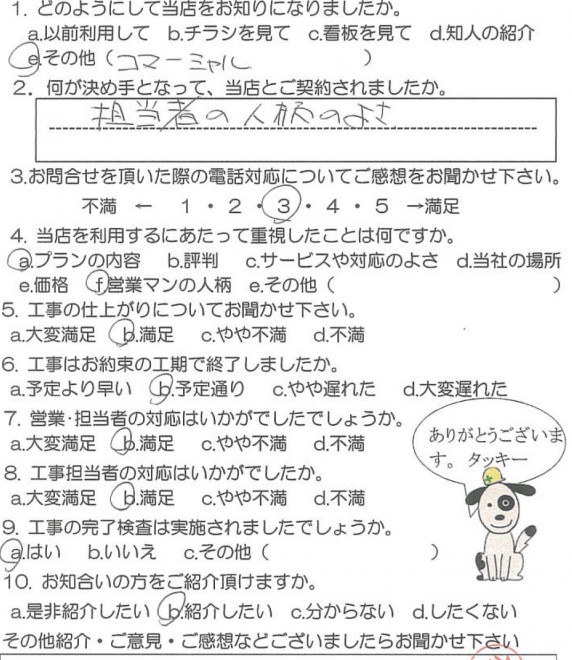 1. どのようにして当店をお知りになりましたか。
a.以前利用して b.チラシを見て c.看板を見て d.知人の紹介
e.その他（コマーシャル）
2. 何が決め手となって、当店とご契約されましたか。
担当者の人柄のよさ
3.お問合せを頂いた際の電話対応についてご感想をお聞かせ下さい。
不満 ← 1・2・3・4・5 →満足
4. 当店を利用するにあたって重視したことは何ですか。
a.プランの内容 b.評判 c.サービスや対応のよさ d.当社の場所
e.価格 f.営業マンの人柄 e.その他（ ）
5. 工事の仕上がりについてお聞かせ下さい。
a.大変満足 b.満足 c.やや不満 d.不満
6. 工事はお約束の工期で終了しましたか。
a.予定より早い b.予定通り c.やや遅れた d.大変遅れた
7. 営業・担当者の対応はいかがでしたでしょうか。
a.大変満足 b.満足 c.やや不満 d.不満
ありがとうございま
す。 タッキー
8. 工事担当者の対応はいかがでしたか。
a.大変満足 b.満足 c.やや不満 d.不満
9. 工事の完了検査は実施されましたでしょうか。
a.はい b.いいえ c.その他（ ）
10. お知合いの方をご紹介頂けますか。
a.是非紹介したい b.紹介したい c.分からない d.したくない
その他紹介・ご意見・ご感想などございましたらお聞かせ下さい